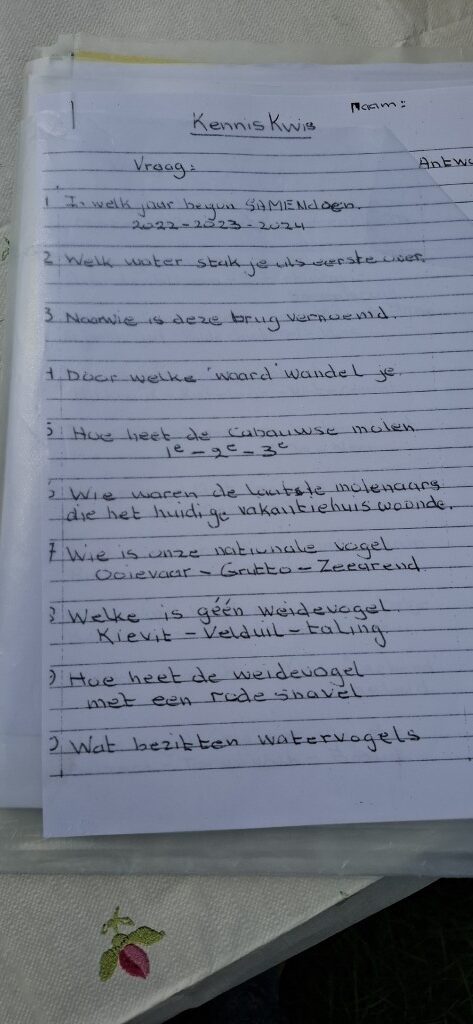 1
Naam:
Kennis Kwis
Vraag:
Antwo
1 In welk jaar begon SAMENdoen.
2022-2023-2024
2 Welk water stak je als eerste over.
3 Naar wie is deze brug vernoemd.
4 Door welke 'waard' wandel je
5 Hoe heet de Cabauwse molen
1e - 2e - 3e
Wie waren de laatste molenaars
die het huidige vakantiehuis woonde.
7 Wie is onze nationale vogel
Ooievaar - Grutto - Zeearend
8 Welke is géén weidevogel
Kievit - Velduil - taling
9 Hoe heet de weidevogel
met een rode snavel
0 Wat bezitten watervogels